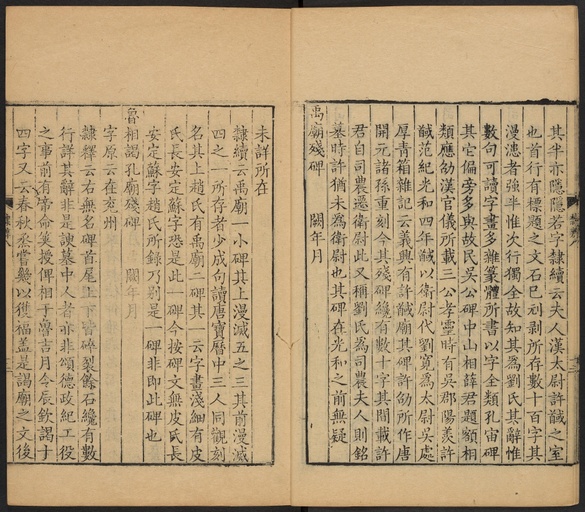 其半亦隱隱若字隸續云夫人漢太尉許䤋之室
也首行有標題之文石已刓剥所存數十百字其
漫漶者強半惟次行獨全故知其為劉氏其辭惟
數句可讀字畫多雜篆體所書以字全類孔宙碑
其它偏旁多與故民吳公碑中山相薛君題額相
類應劭漢官儀所載三公孝靈時有吳郡陽羡許
䤋范紀光和四年䤋以衛尉代劉寬為太尉吳處
厚青箱雜記云義興有許䤋廟其碑許劭所作唐
開元諸孫重刻今其殘碑纔有數十字其間載許
君自司農遷衛尉此又稱劉氏為司農夫人則銘
墓時許猶未為衛尉也其碑在光和之前無疑
禹廟殘碑 闕年月
未詳所在
隸續云禹廟一小碑其上漫滅五之三其前漫滅
四之一所存者少成句讀唐寶曆中三人同觀刻
名其上趙氏有禹廟二碑其一云字畫淺細有皮
氏長安定蘇字恐是此碑今按碑文無皮氏長
安定蘇字趙氏所錄乃别是一碑非即此碑也
魯相謁孔廟殘碑 闕年月
字原云在兖州
隸釋云右無名碑首尾上下皆碎裂餘石纔有數
行詳其辭非是諛墓中人者亦非頌德政紀工役
之事前有帝命筴授俾相于魯吉月今辰欽謁十
四字又云春秋烝嘗懸以獲福蓋是謁廟之文後